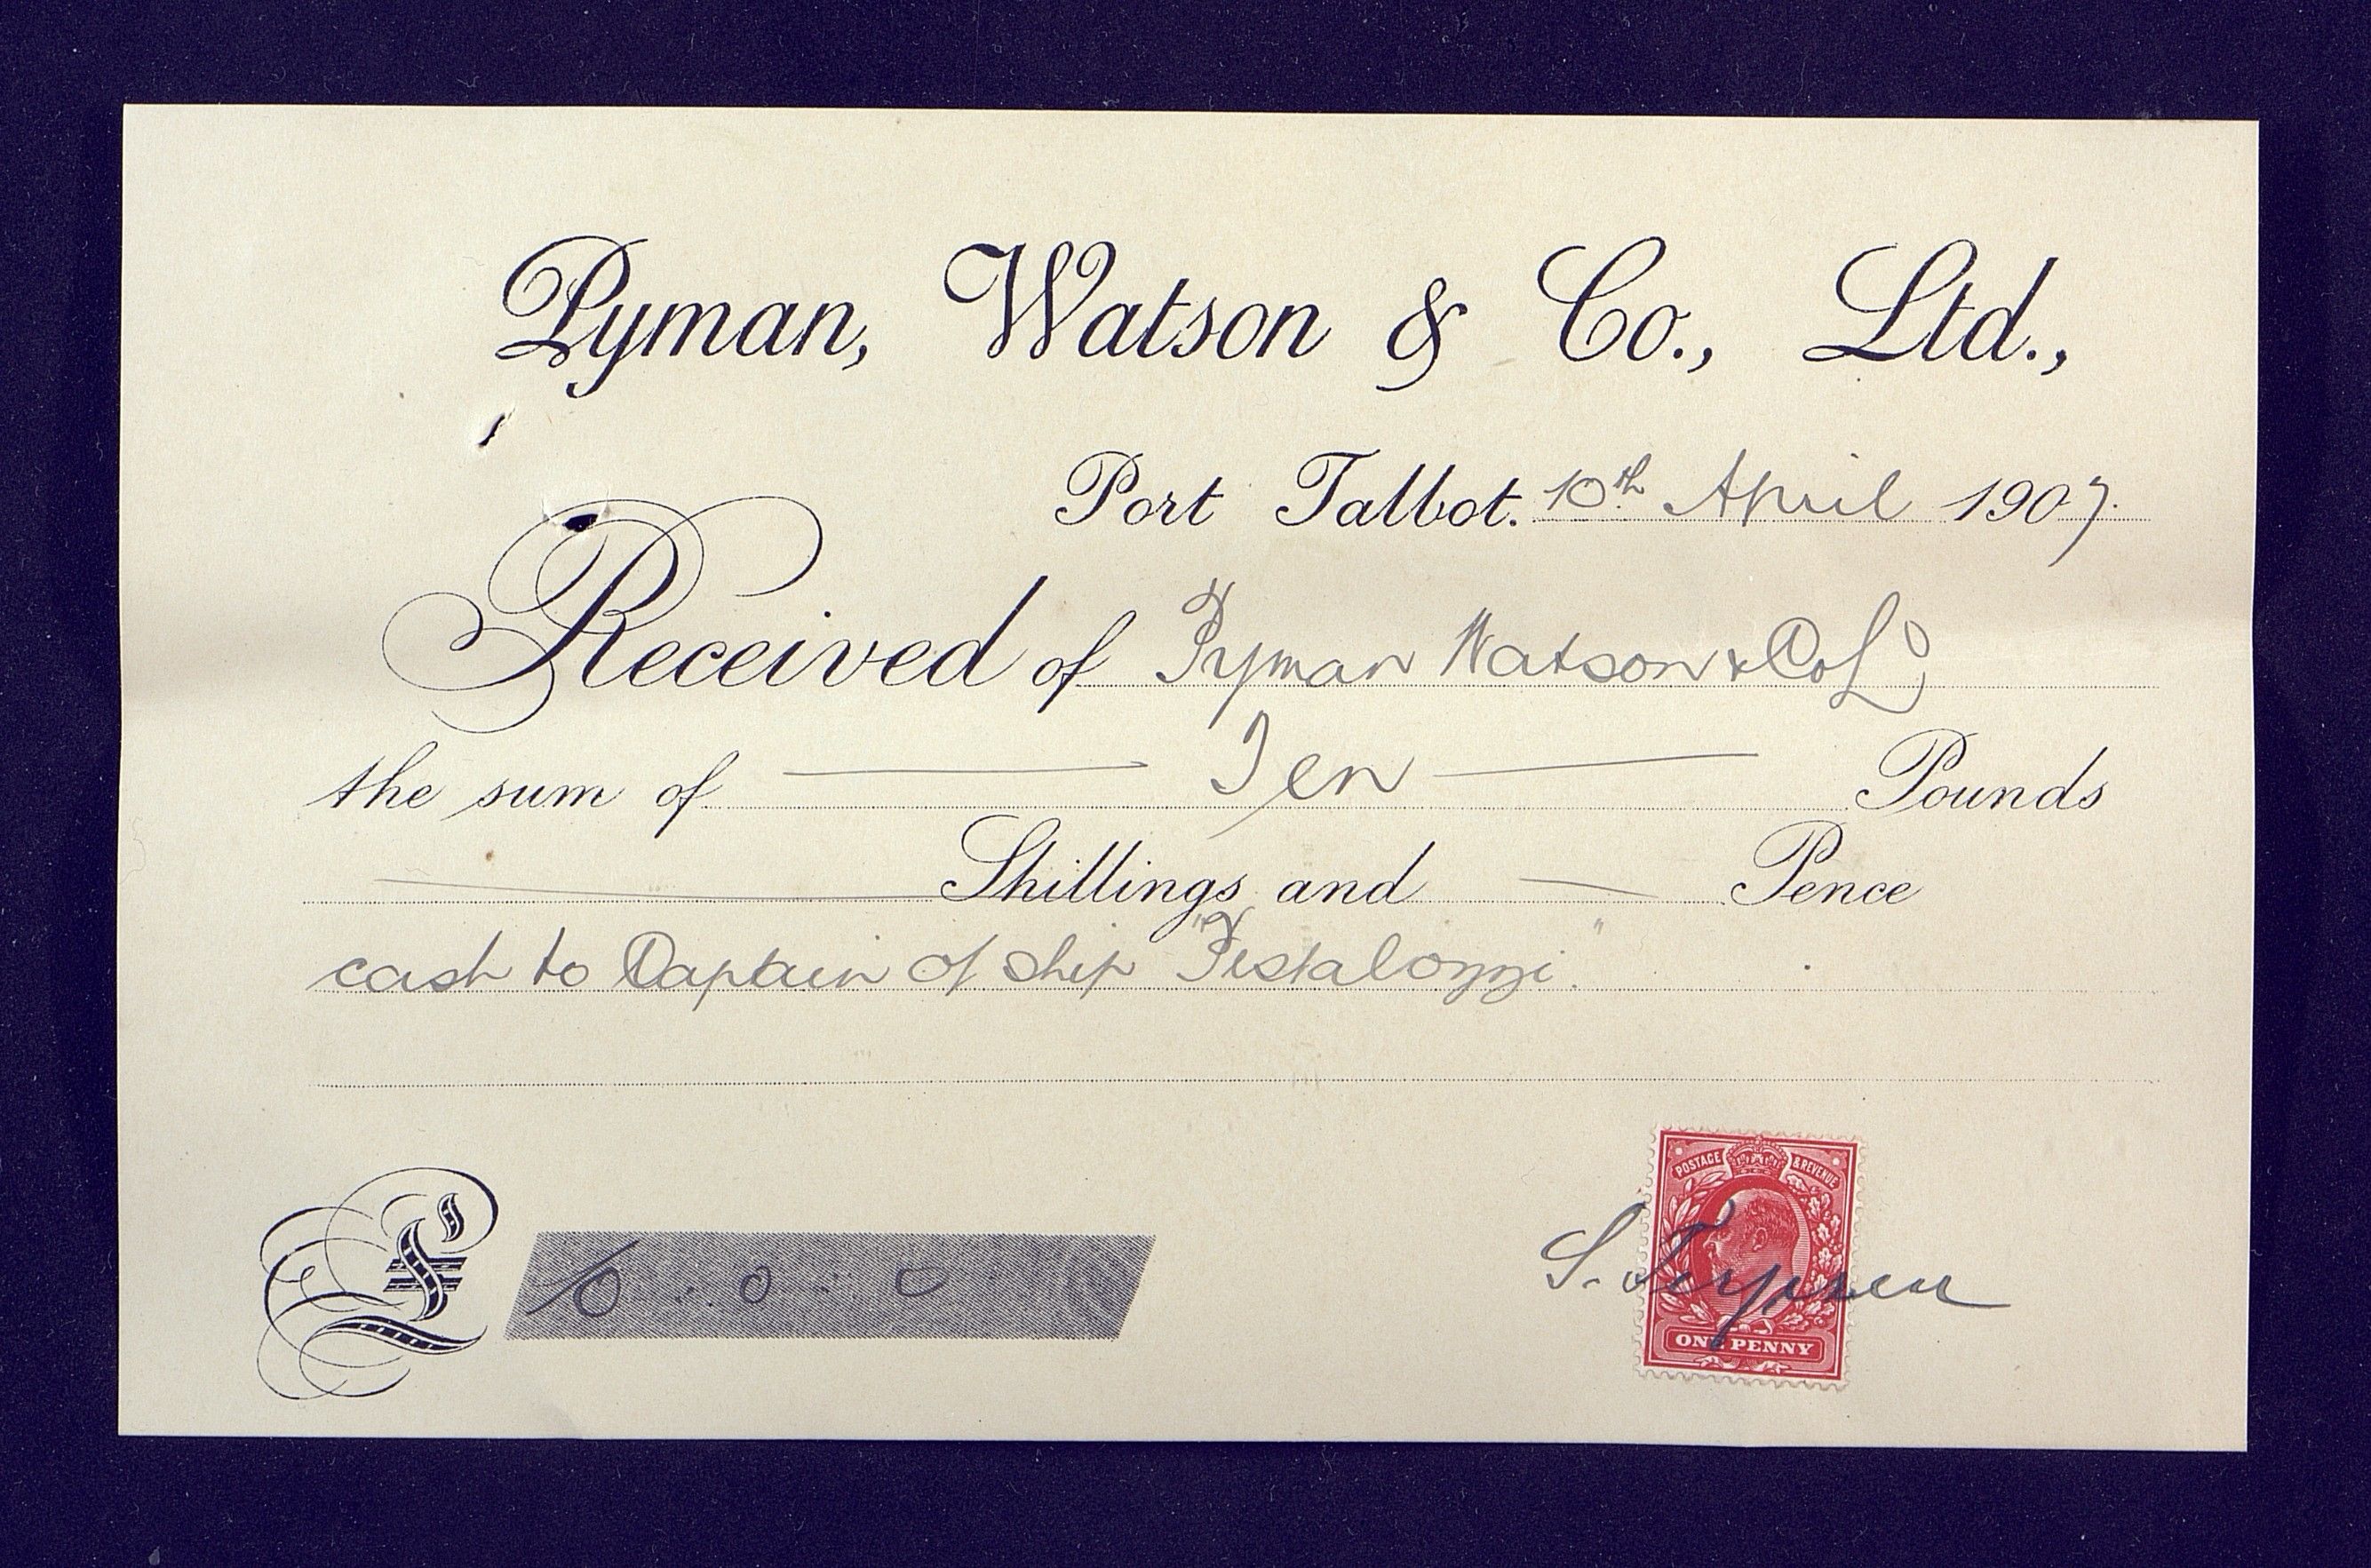 Pyman, Watson & Co., Ltd.,
Port Talbot. 10th April 1907.
Received of Pyman Watson & Co Ld
the sum of Ten Pounds
Shillings and Pence
cash to Captain of ship "Pestalozzi".
POSTAGE & REVENUE
£ 10 . 0 . 0
S.
ONE PENNY